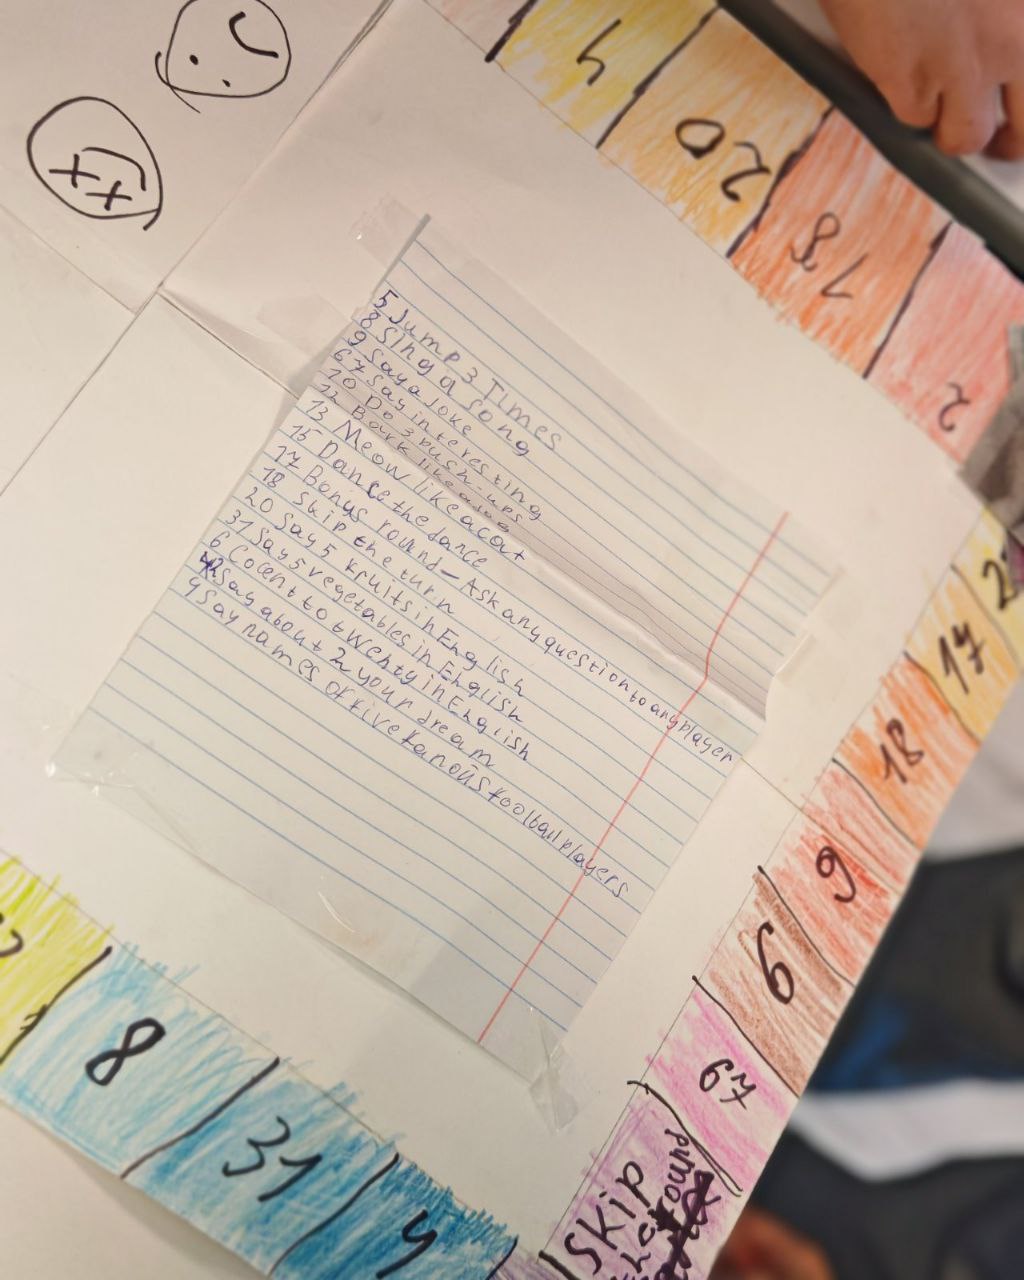 4
20
18
2
5 Jump 3 Times
8 Sing a song
9 Say a Joke
67 Say interesting
10 Do 3 push-ups
12 Bark like a dog
13 Meow like a cat
15 Dance the dance
17 Bonus round - Ask any question to any player
18 Skip the turn
20 Say 5 kruits in English
31 Say 5 vegetables in English
6 Cocent to tWenty in English
42 Say about 2 your dream
4 Say names of five famous football players
17
18
9
6
67
SKIP
round
8
31
4